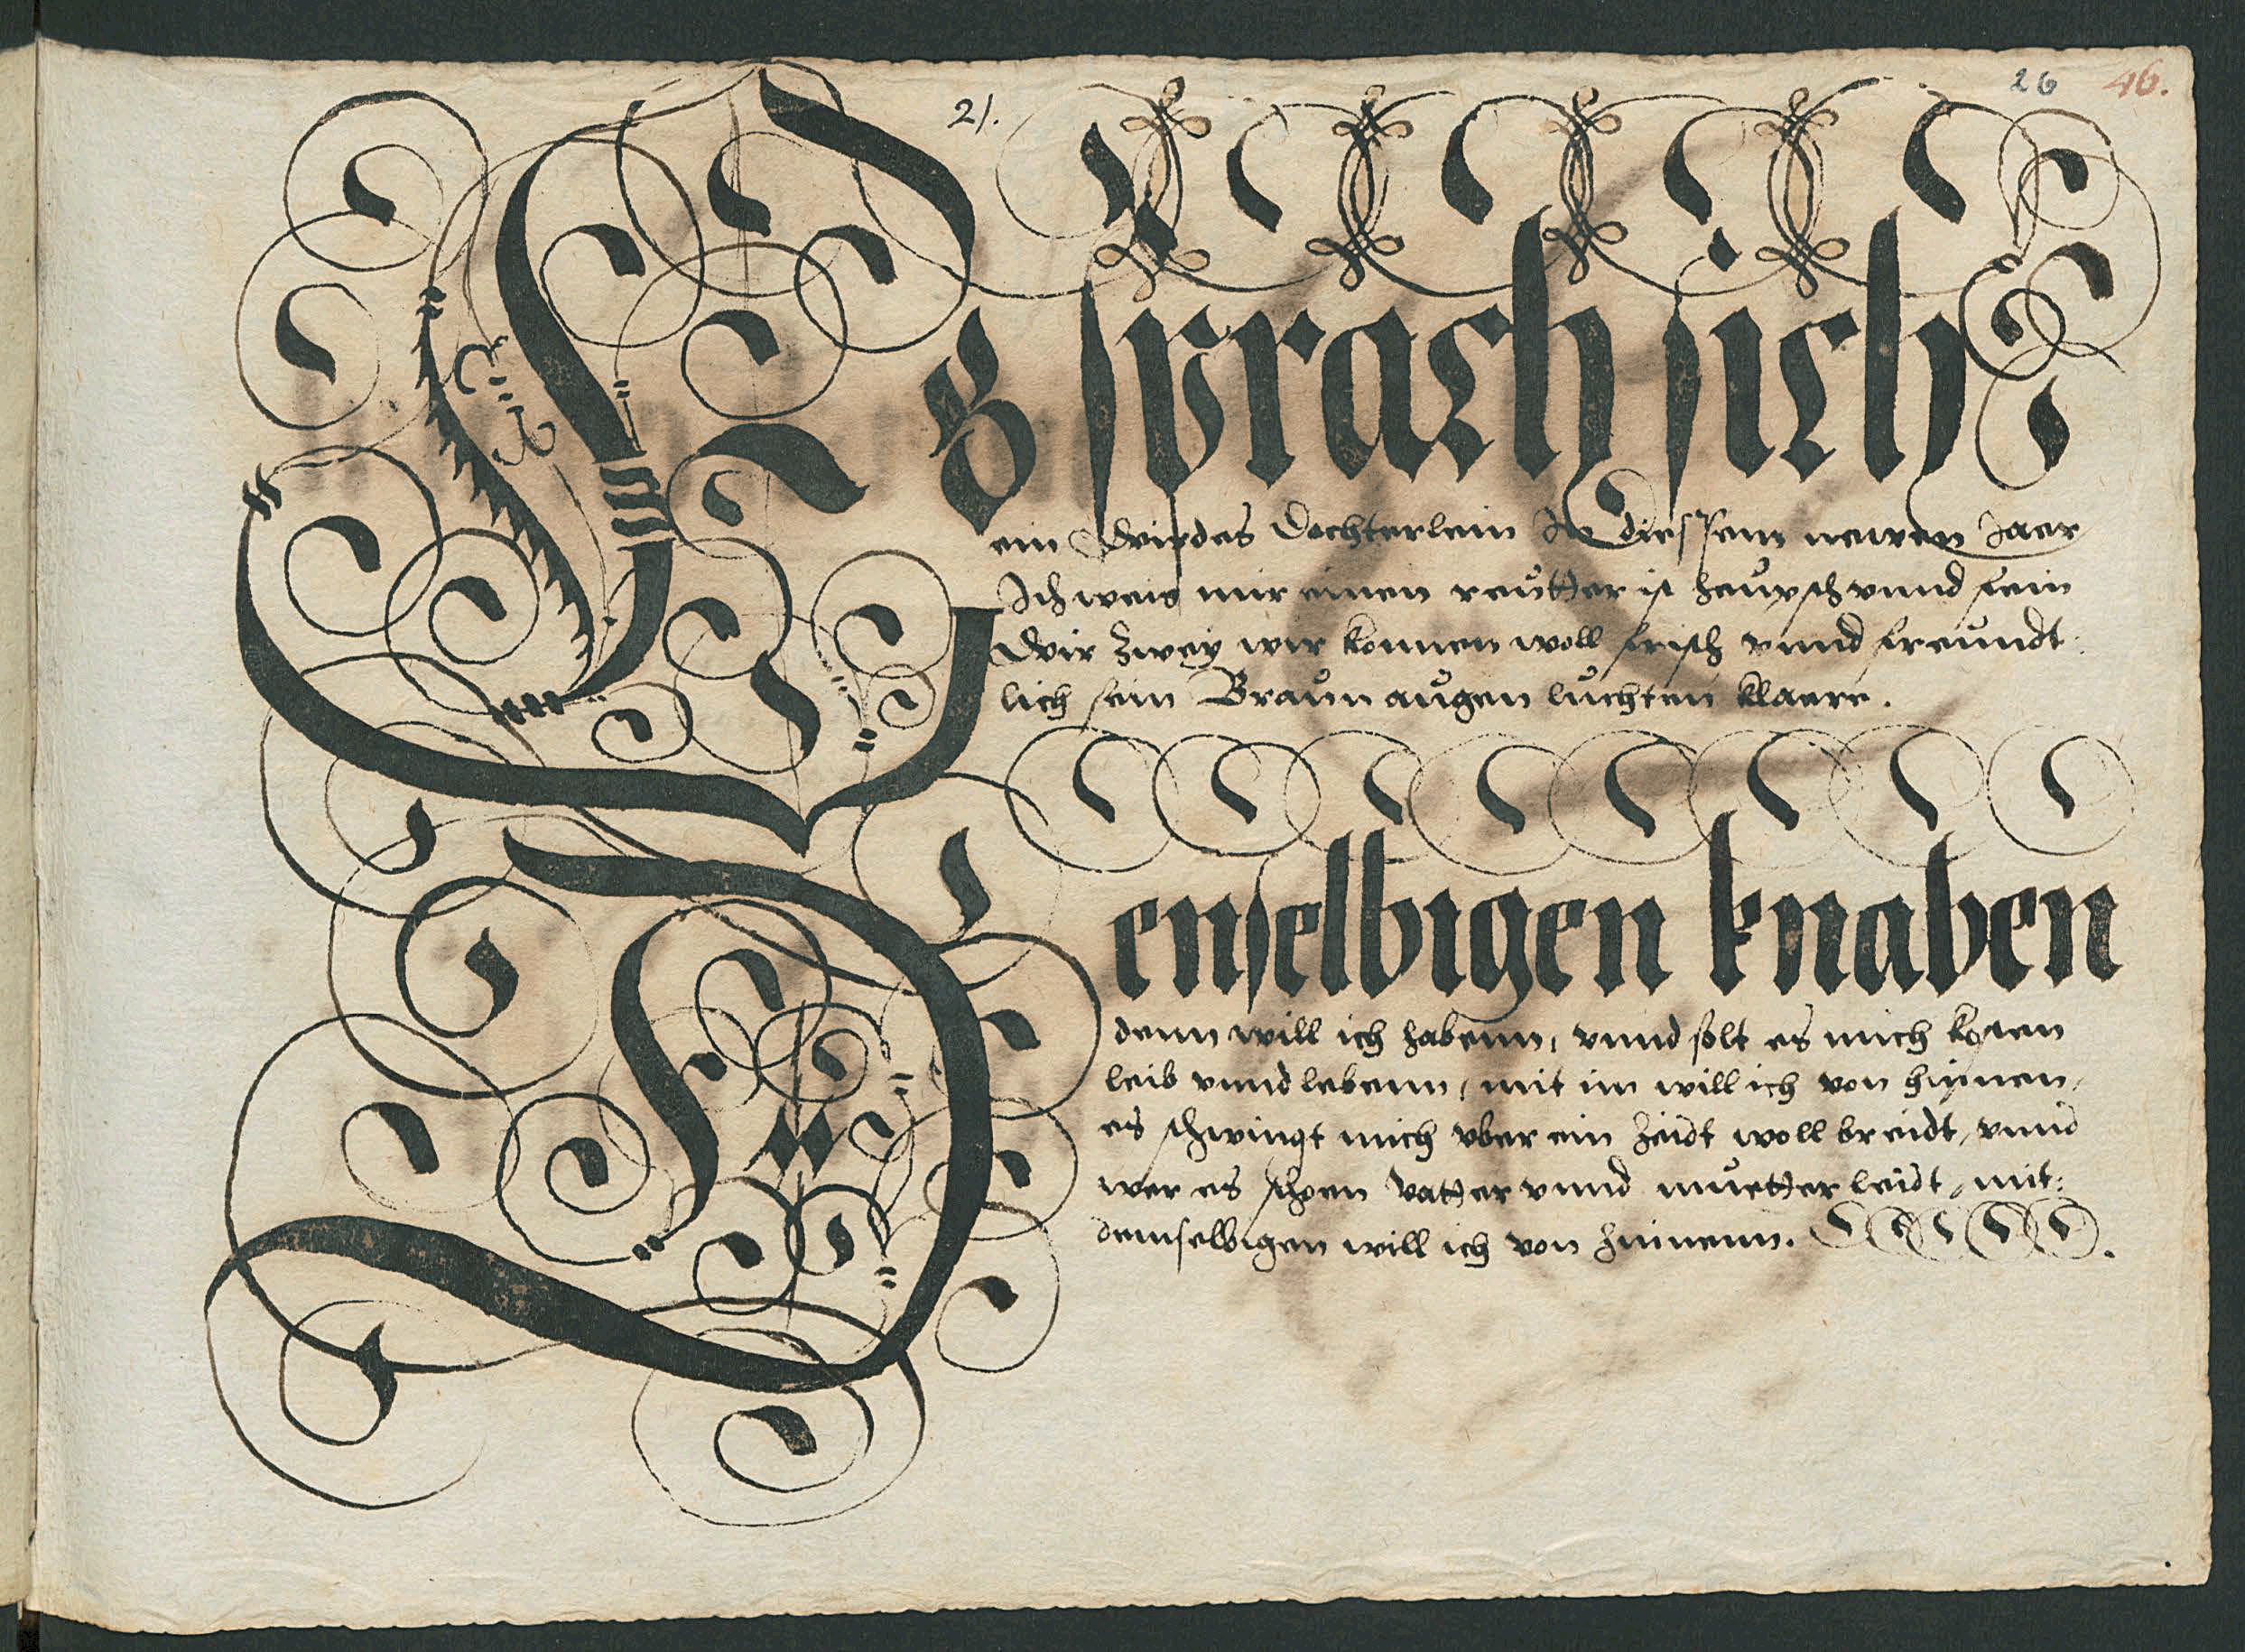 21.
26 46.
Es sprach sich
ein Wirdes Dochterlein In diessem newen Jaer
Ich weis mir einen reutter ist heupsch vnnd fein
Wir zwey wir konnen woll frisch vnnd freundt:
lich sein Braun augen luchten klaere.
Denselbigen knaben
denn will ich habenn, vnnd solt es mich kosten
leib vnnd lebenn, mit im will ich von hinnen,
es schwingt mich vber ein heidt woll breidt, vnnd
wer es schoen vatter vnnd muetter leidt, mit:
demselbigen will ich von hinnenn.